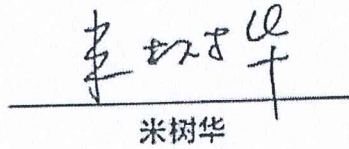 米树华
米树华